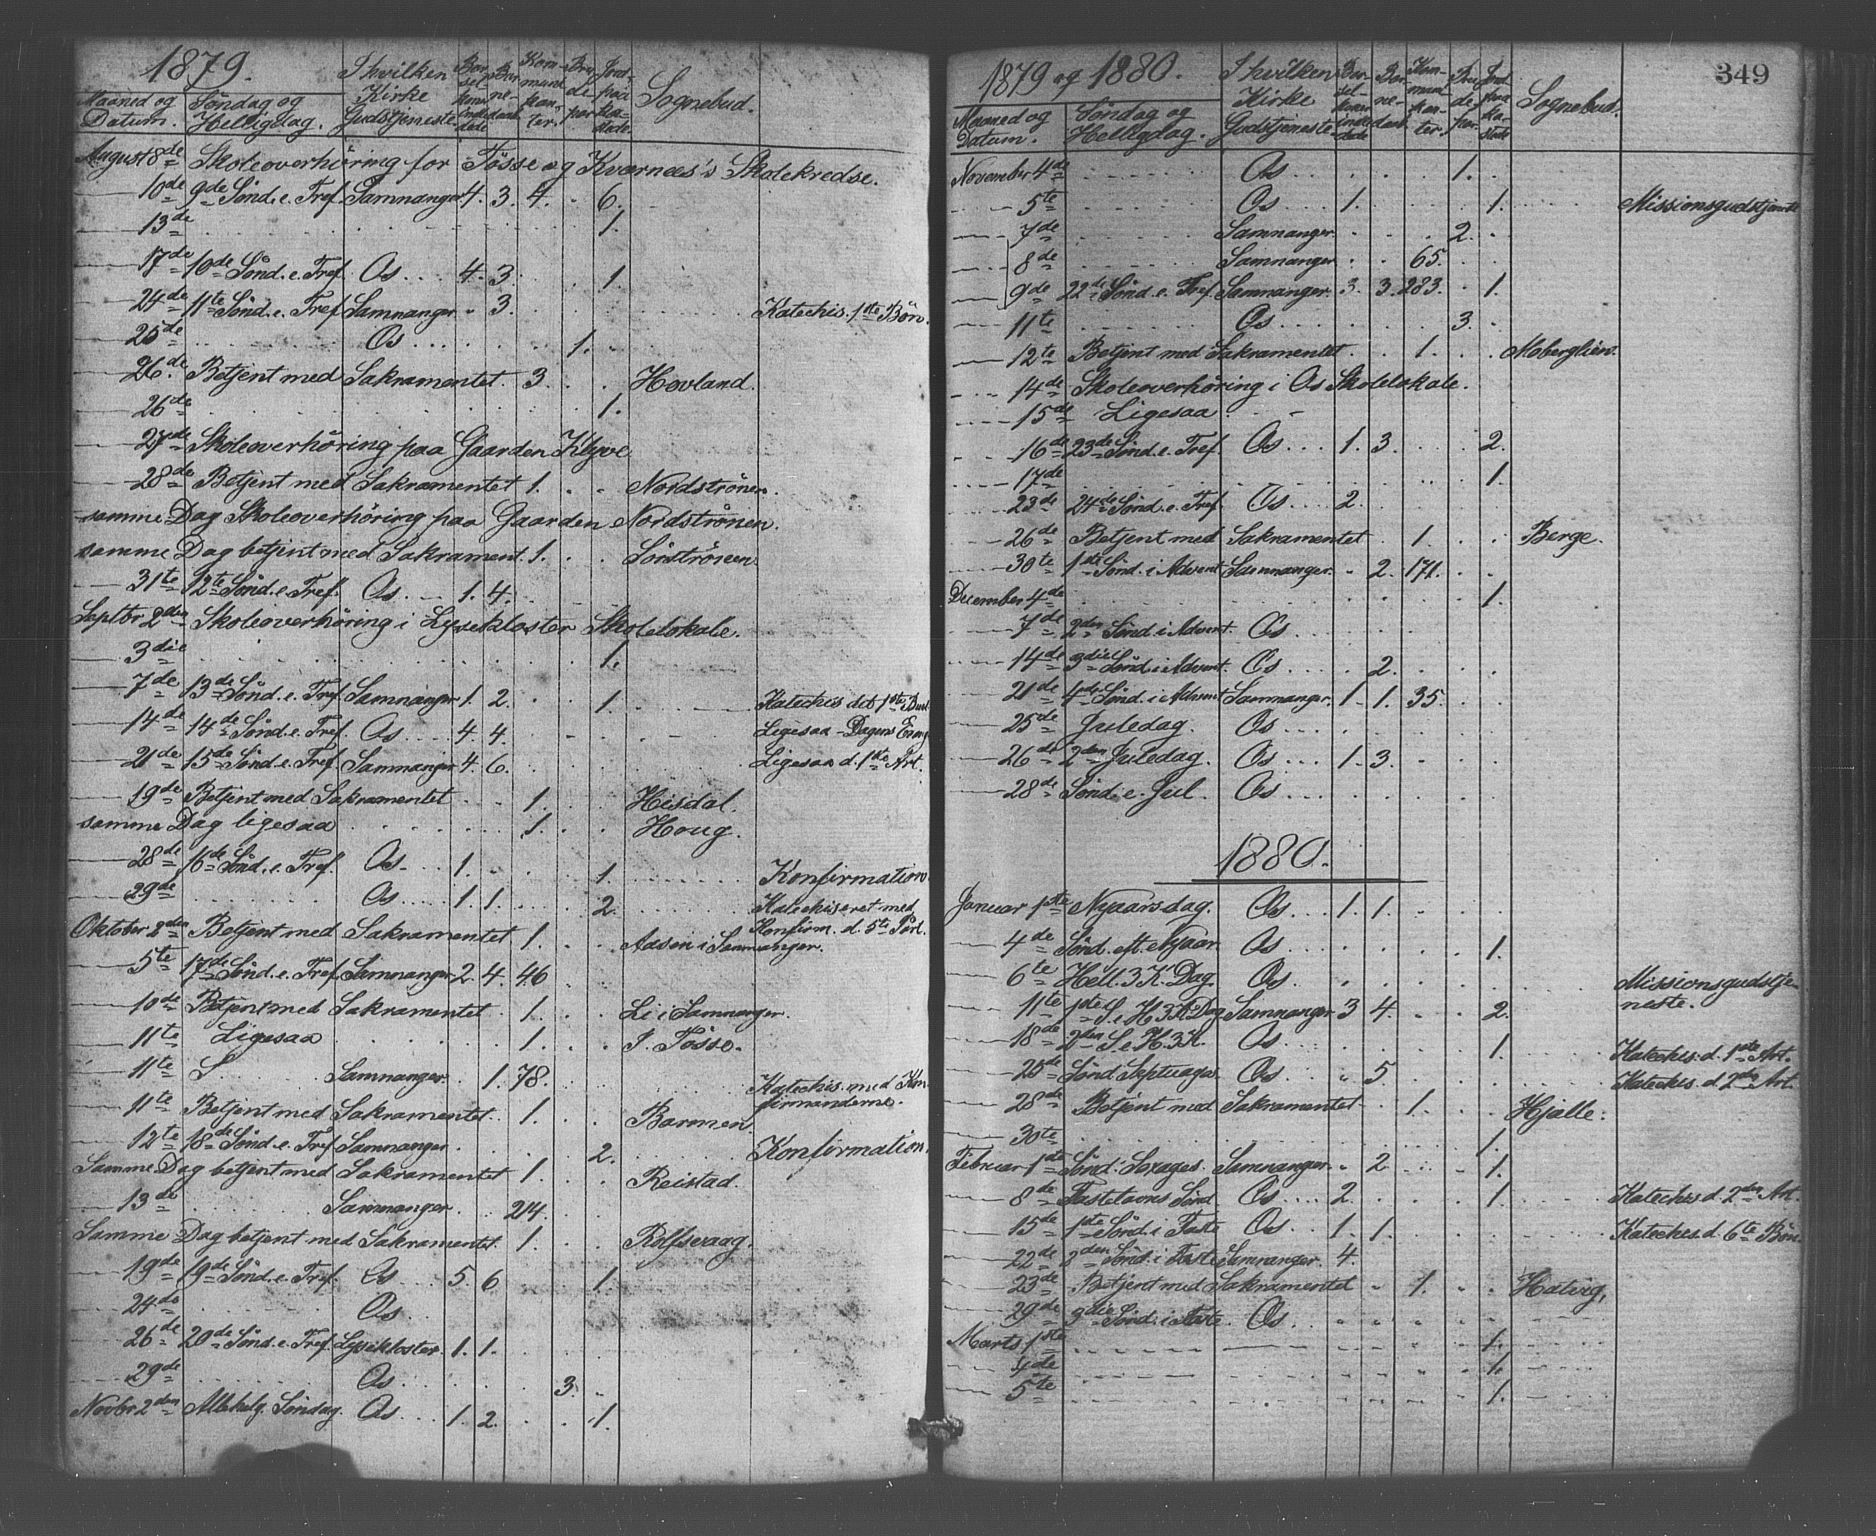 1879.
Maaned og Datum. Søndag og Helligdag. I hvilken Kirke Gudstjeneste Barselkoner indledede Barnedaab Kommunikanter. Brudepar Jordpaakastede. Sognebud.
August 8de Skoleoverhøring for Tøsse og Kvernæs's Skolekredse.
10de 9de Sønd. e. Tref. Samnanger 4. 3. 4. 6.
13de 1.
17de 10de Sønd. e. Tref. Os 4. 3. 1.
24de 11te Sønd. e. Tref. Samnanger 3. Katechis. 1ste Bøn.
25de Os 1.
26de Betjent med Sakramentet. 3. Hovland.
26de 1.
27de Skoleoverhøring paa Gaarden Klyve
28de Betjent med Sakramentet 1. Nordstrønen.
samme Dag Skoleoverhøring paa Gaarden Nordstrønen.
samme Dag betjent med Sakrament. 1. Sørstrønen
31te 12te Sønd. e. Tref. Os. 1. 4.
Septbr 2den Skoleoverhøring i Lysekloster Skolelokale.
3die 1.
7de 13de Sønd. e. Tref. Samnanger 1. 2. 1. Katechis det 1ste Bud
14de 14de Sønd. e. Tref. Os 4. 4. Ligesaa - Dagens Evang
21de 15de Sønd. e. Tref. Samnanger 4. 6. Ligesaa d. 1ste Art.
19de Betjent med Sakramentet 1. Hisdal.
samme Dag ligesaa 1. Houg.
28de 16de Sønd. e. Tref. Os. 1. 1. Konfirmation.
29de Os 1. 1. 2. Katechiseret med Konfirm. d. 5te Part.
Oktober 2den Betjent med Sakramentet 1. Aasen i Samnanger.
5te 17de Sønd. e. Tref. Samnanger 2. 4. 46
10de Betjent med Sakramentet 1. Li i Samnanger.
11te Ligesaa 1. I. Tøsse.
11te Samnanger 1. 78. Katechis. med Konfirmanderne.
11te Betjent med Sakramentet. 1. Barmen
12te 18de Sønd. e. Tref. Samnanger. 2. Konfirmation.
Samme Dag betjent med Sakramentet 1. Reistad.
13de Samnanger 24.
Samme Dag betjent med Sakramentet. 1. Rolfsvaag.
19de 19de Sønd. e. Tref. Os 5. 6 1.
24de Os
26de 20de Sønd. e. Tref. Lysekloster. 1. 1.
29de Os 3.
Novbr 2den Allehelg. Søndag. Os 1. 2. 1.
349
1879 og 1880.
Maaned og Datum. Søndag og Helligdag. I hvilken Kirke Gudstjeneste Barselkoner indledede Barnedaab Kommunikanter. Brudepar. Jordpaakastede Sognebud.
November 4de Os 1.
5te Os 1. 1. Missionsgudstjeneste
7de Samnanger. 2.
8de Samnanger 65.
9de 22de Sønd. e. Tref. Samnanger. 3. 3. 283. 1.
11te Os 3.
12te Betjent med Sakramentet 1. Moberglien.
14de Skoleoverhøring i Os Skolelokale.
15de Ligesaa
16de 23de Sønd. e. Tref. Os 1. 3. 2.
17de 1.
23de 24de Sønd. e. Tref. Os 2.
26de Betjent med Sakramentet 1. Berge.
30te 1ste Sønd. i Advent Samnanger. 2. 171.
December 4de 1.
7de 2den Sønd i Advent. Os
14de 3die Sønd. i Advent. Os 2.
21de 4de Sønd. i Advent Samnanger. 1. 1. 35.
25de Juledag. Os
26de 2den Juledag. Os 1. 3.
28de Sønd. e. Jul. Os
1880.
Januar 1ste Nyaarsdag. Os 1. 1.
4de Sønd. eft. Nyaar. Os 1.
6te Hell. 3 K. Dag. Os. Missionsgudstjeneste.
11te 1ste S. e. H 3 K Dag Samnanger 3 4. 2.
18de 2den S. e. H. 3. K. Os 1. Katechis. d. 1ste Art.
25de Sønd Septuages. Os 5 Katechis. d. 2den Art.
28de Betjent med Sakramentet 1. Hjelle.
30te 1.
Februar 1ste Sønd. Sexages. Samnanger. 2 1.
8de Fastelavns Sønd. Os 2. 1. Katechis d. 2den Art.
15de 1ste Sønd. i Faste Os. 1. 1. Katechis. d. 6te Bøn.
22de 2den Sønd. i Faste Samnanger. 4.
23de Betjent med Sakramentet 1. Hatvig.
29de 3die Sønd. i Faste. Os.
Marts 1ste 1.
4de 1.
5te 1.